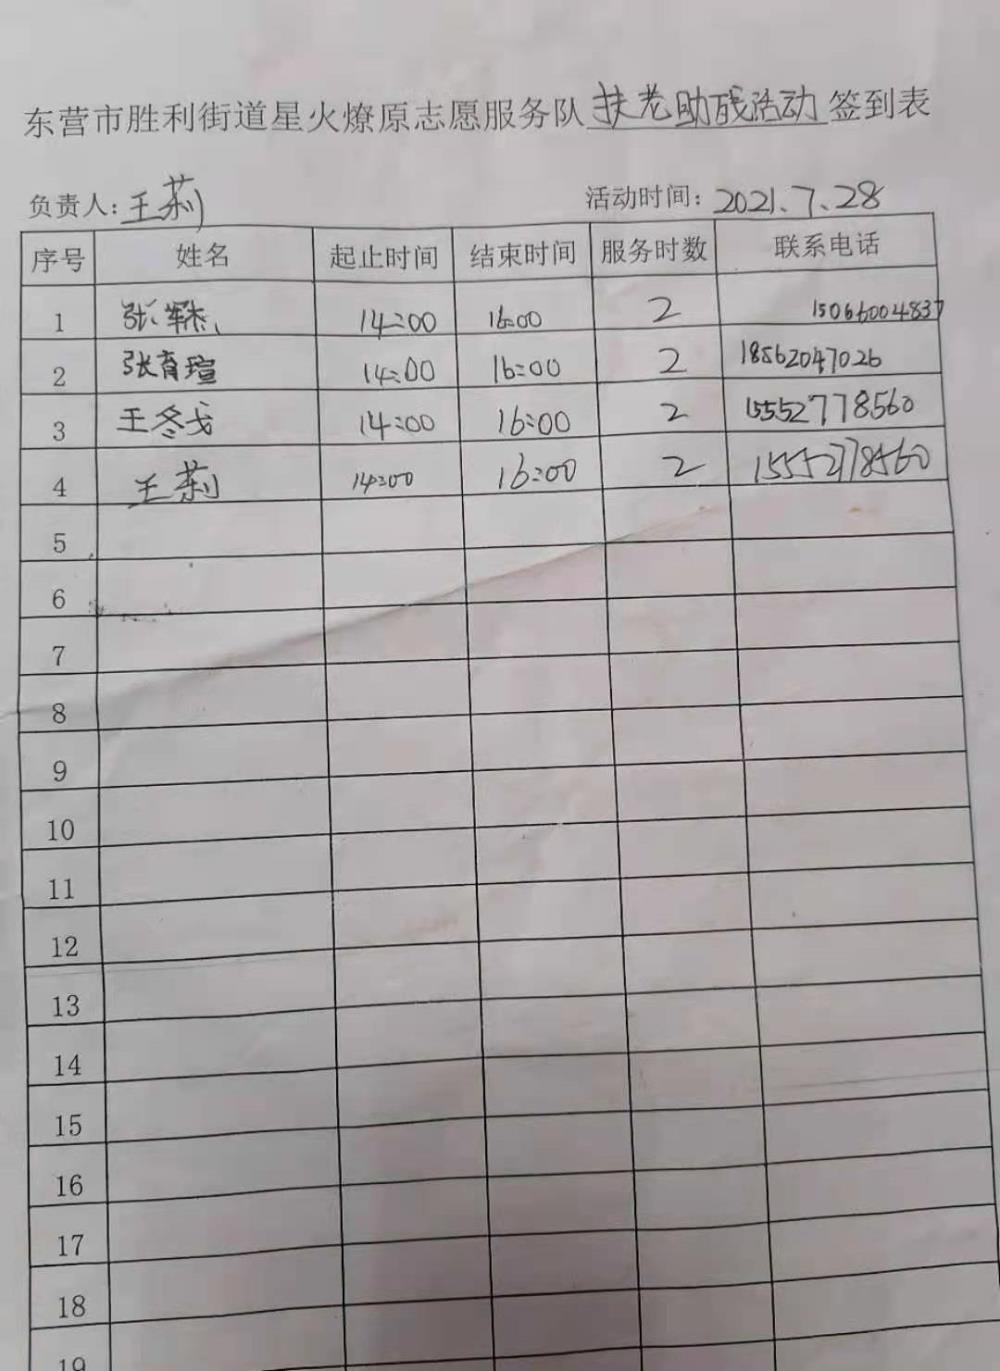 东营市胜利街道星火燎原志愿服务队扶老助残活动签到表
负责人:王莉 活动时间:2021.7.28
序号 姓名 起止时间 结束时间 服务时数 联系电话
1 张 14:00 16:00 2 15066004837
2 张育瑄 14:00 16:00 2 18562047026
3 王冬戈 14:00 16:00 2 15552778560
4 王莉 14:00 16:00 2 15552778560
5
6
7
8
9
10
11
12
13
14
15
16
17
18
19